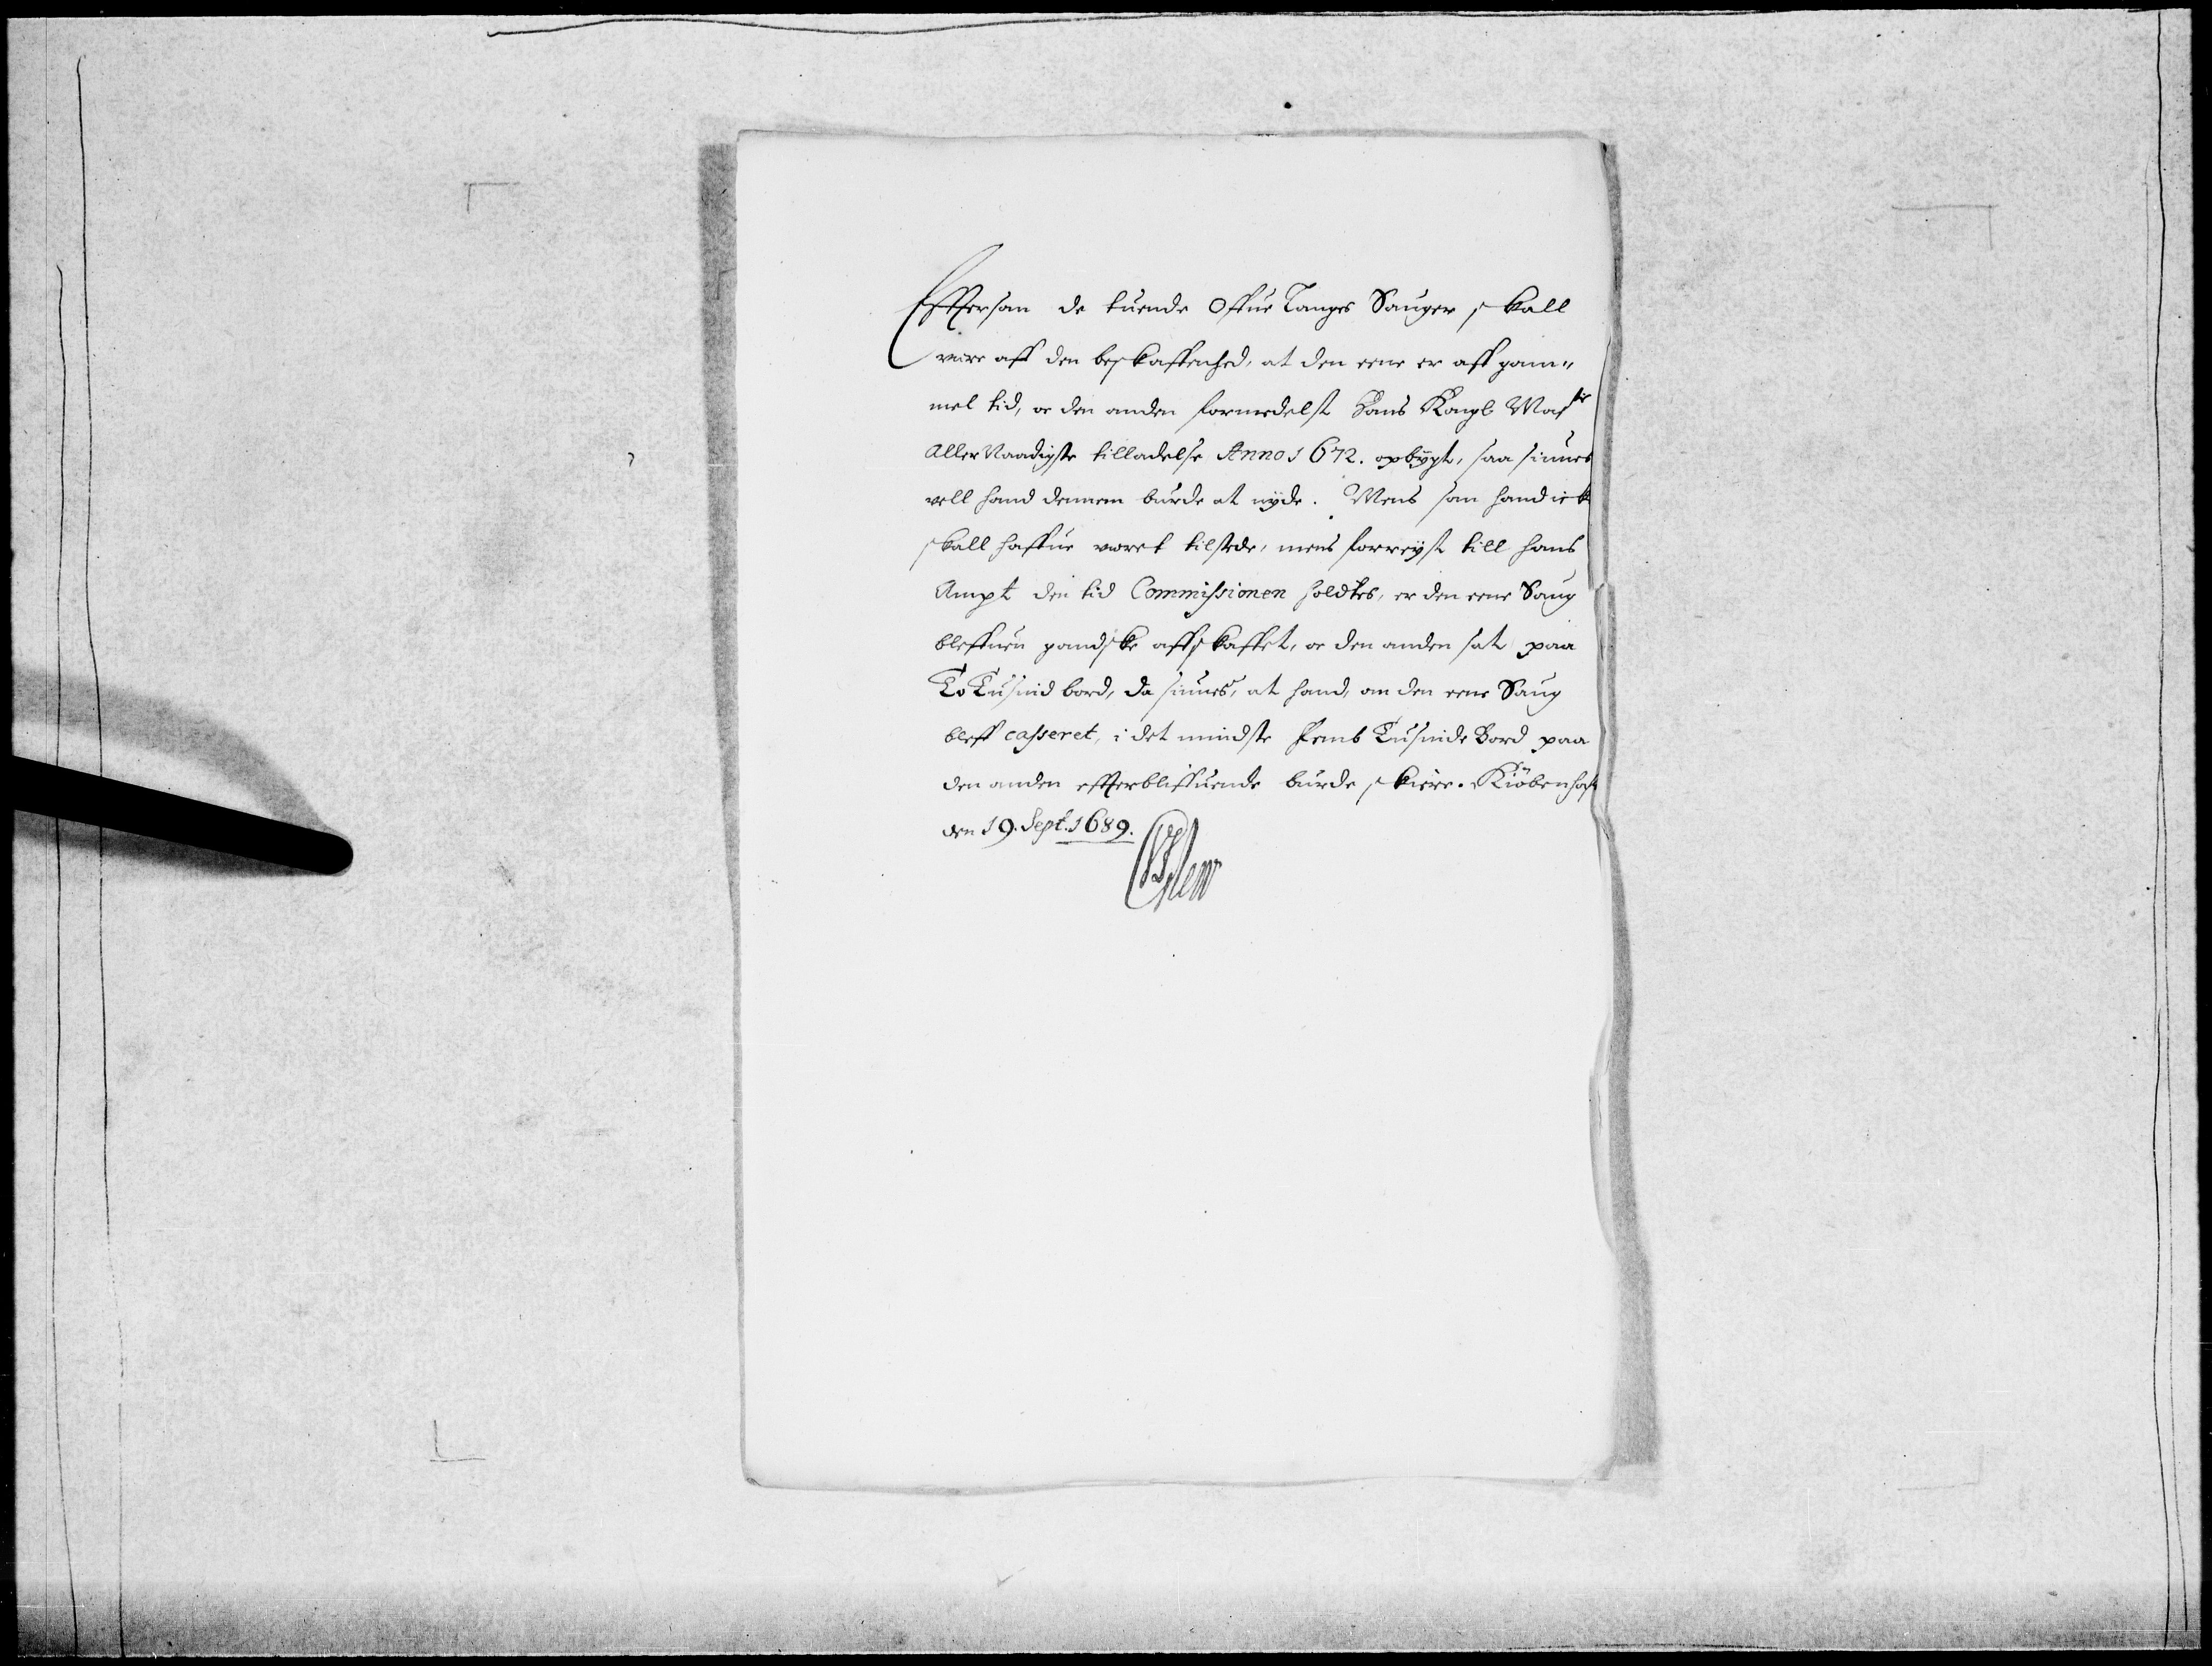 Effterson de tuende Offue Langes Sauger skall
være aff den beskaffenhed, at den eene er aff gam„
mel tid, oc den anden formedelst Hans Kongl May<sup>ts</sup>
Aller Naadigste tilladelse Anno 1672. opbygt, saa siunes
vell hand dennem burde at nyde. Mens som hand ick
skall haffue veret tilstede, mens forreyst till hans
Ampt den tid Commissionen holdtes, er den eene Saug
bleffuen gandske affskaffet, oc den anden sat paa
To Tusind bord, da siunes, at hand, om den eene Saug
bleff casseret, i det mindste Femb Tusinde Bord paa
den anden effterbliffuende burde skiere. Kiöbenhaff
den 19. Sept. 1689.